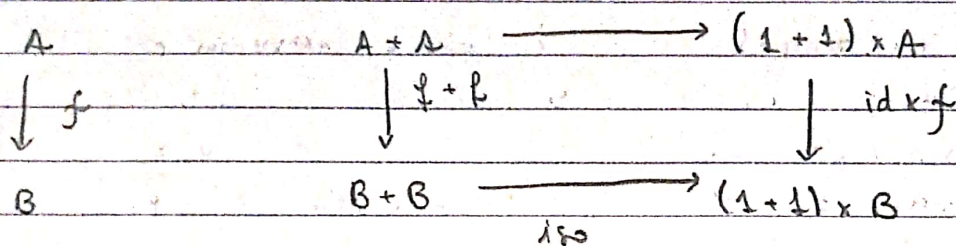 A A + A (1 + 1) × A
f f + f id × f
B B + B (1 + 1) × B
iso